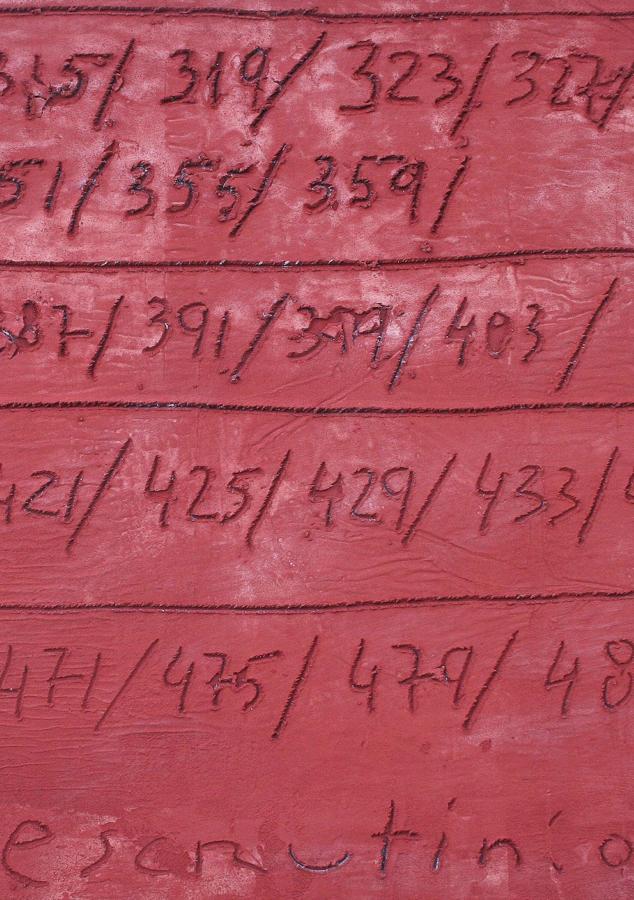 315/ 319/ 323/ 327/
51/ 355/ 359/
387/ 391/ 399/ 403/
421/ 425/ 429/ 433/
471/ 475/ 479/ 48
escrutinio